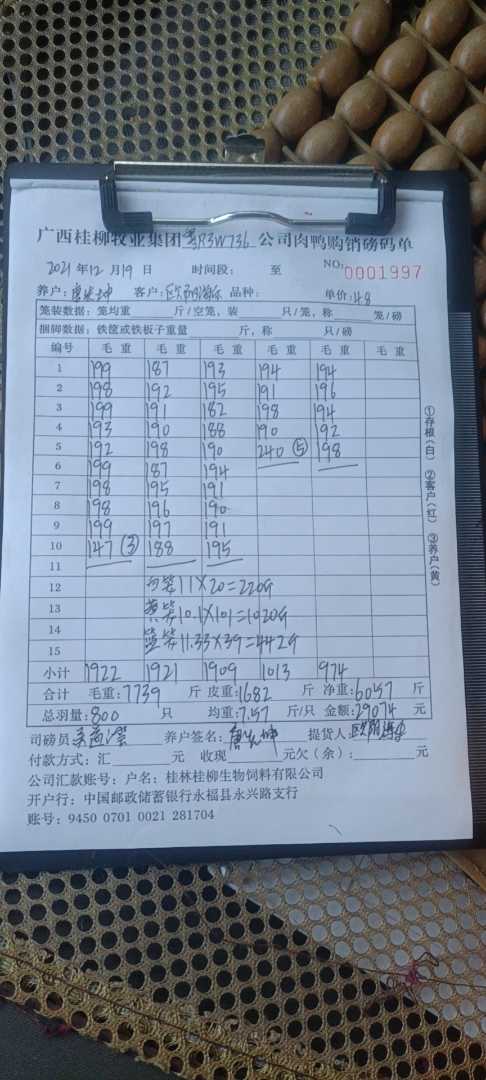 广西桂柳牧业集团 R3W736 公司肉鸭购销磅码单
2021年12月19日 时间段： 至 NO:0001997
养户： 坤 客户： 品种： 单价：4.8
笼装数据：笼均重 斤/空笼，装 只/笼，称 笼/磅
捆脚数据：铁筐或铁板子重量 斤，称 只/磅
编号 毛重 毛重 毛重 毛重 毛重 毛重
1 199 187 193 194 194
2 198 192 195 191 196
3 199 191 182 198 194
4 193 190 188 190 192
5 192 198 190 240⑤ 198
6 199 187 194
7 198 195 191
8 198 196 190
9 199 197 191
10 147③ 188 195
11
12 白笼11×20=220G
13 黄笼10.1×101=1020G
14 蓝笼11.33×39=442G
15
小计 1922 1921 1909 1013 974
合计 毛重：7739 斤 皮重：1682 斤 净重：6057 斤
总羽量：800 只 均重：7.57 斤/只 金额：29074 元
司磅员 养户签名： 坤 提货人：
付款方式：汇 元 收现 元欠（余）： 元
公司汇款账号：户名：桂林桂柳生物饲料有限公司
开户行：中国邮政储蓄银行永福县永兴路支行
账号：9450 0701 0021 281704
①存根（白） ②客户（红） ③养户（黄）